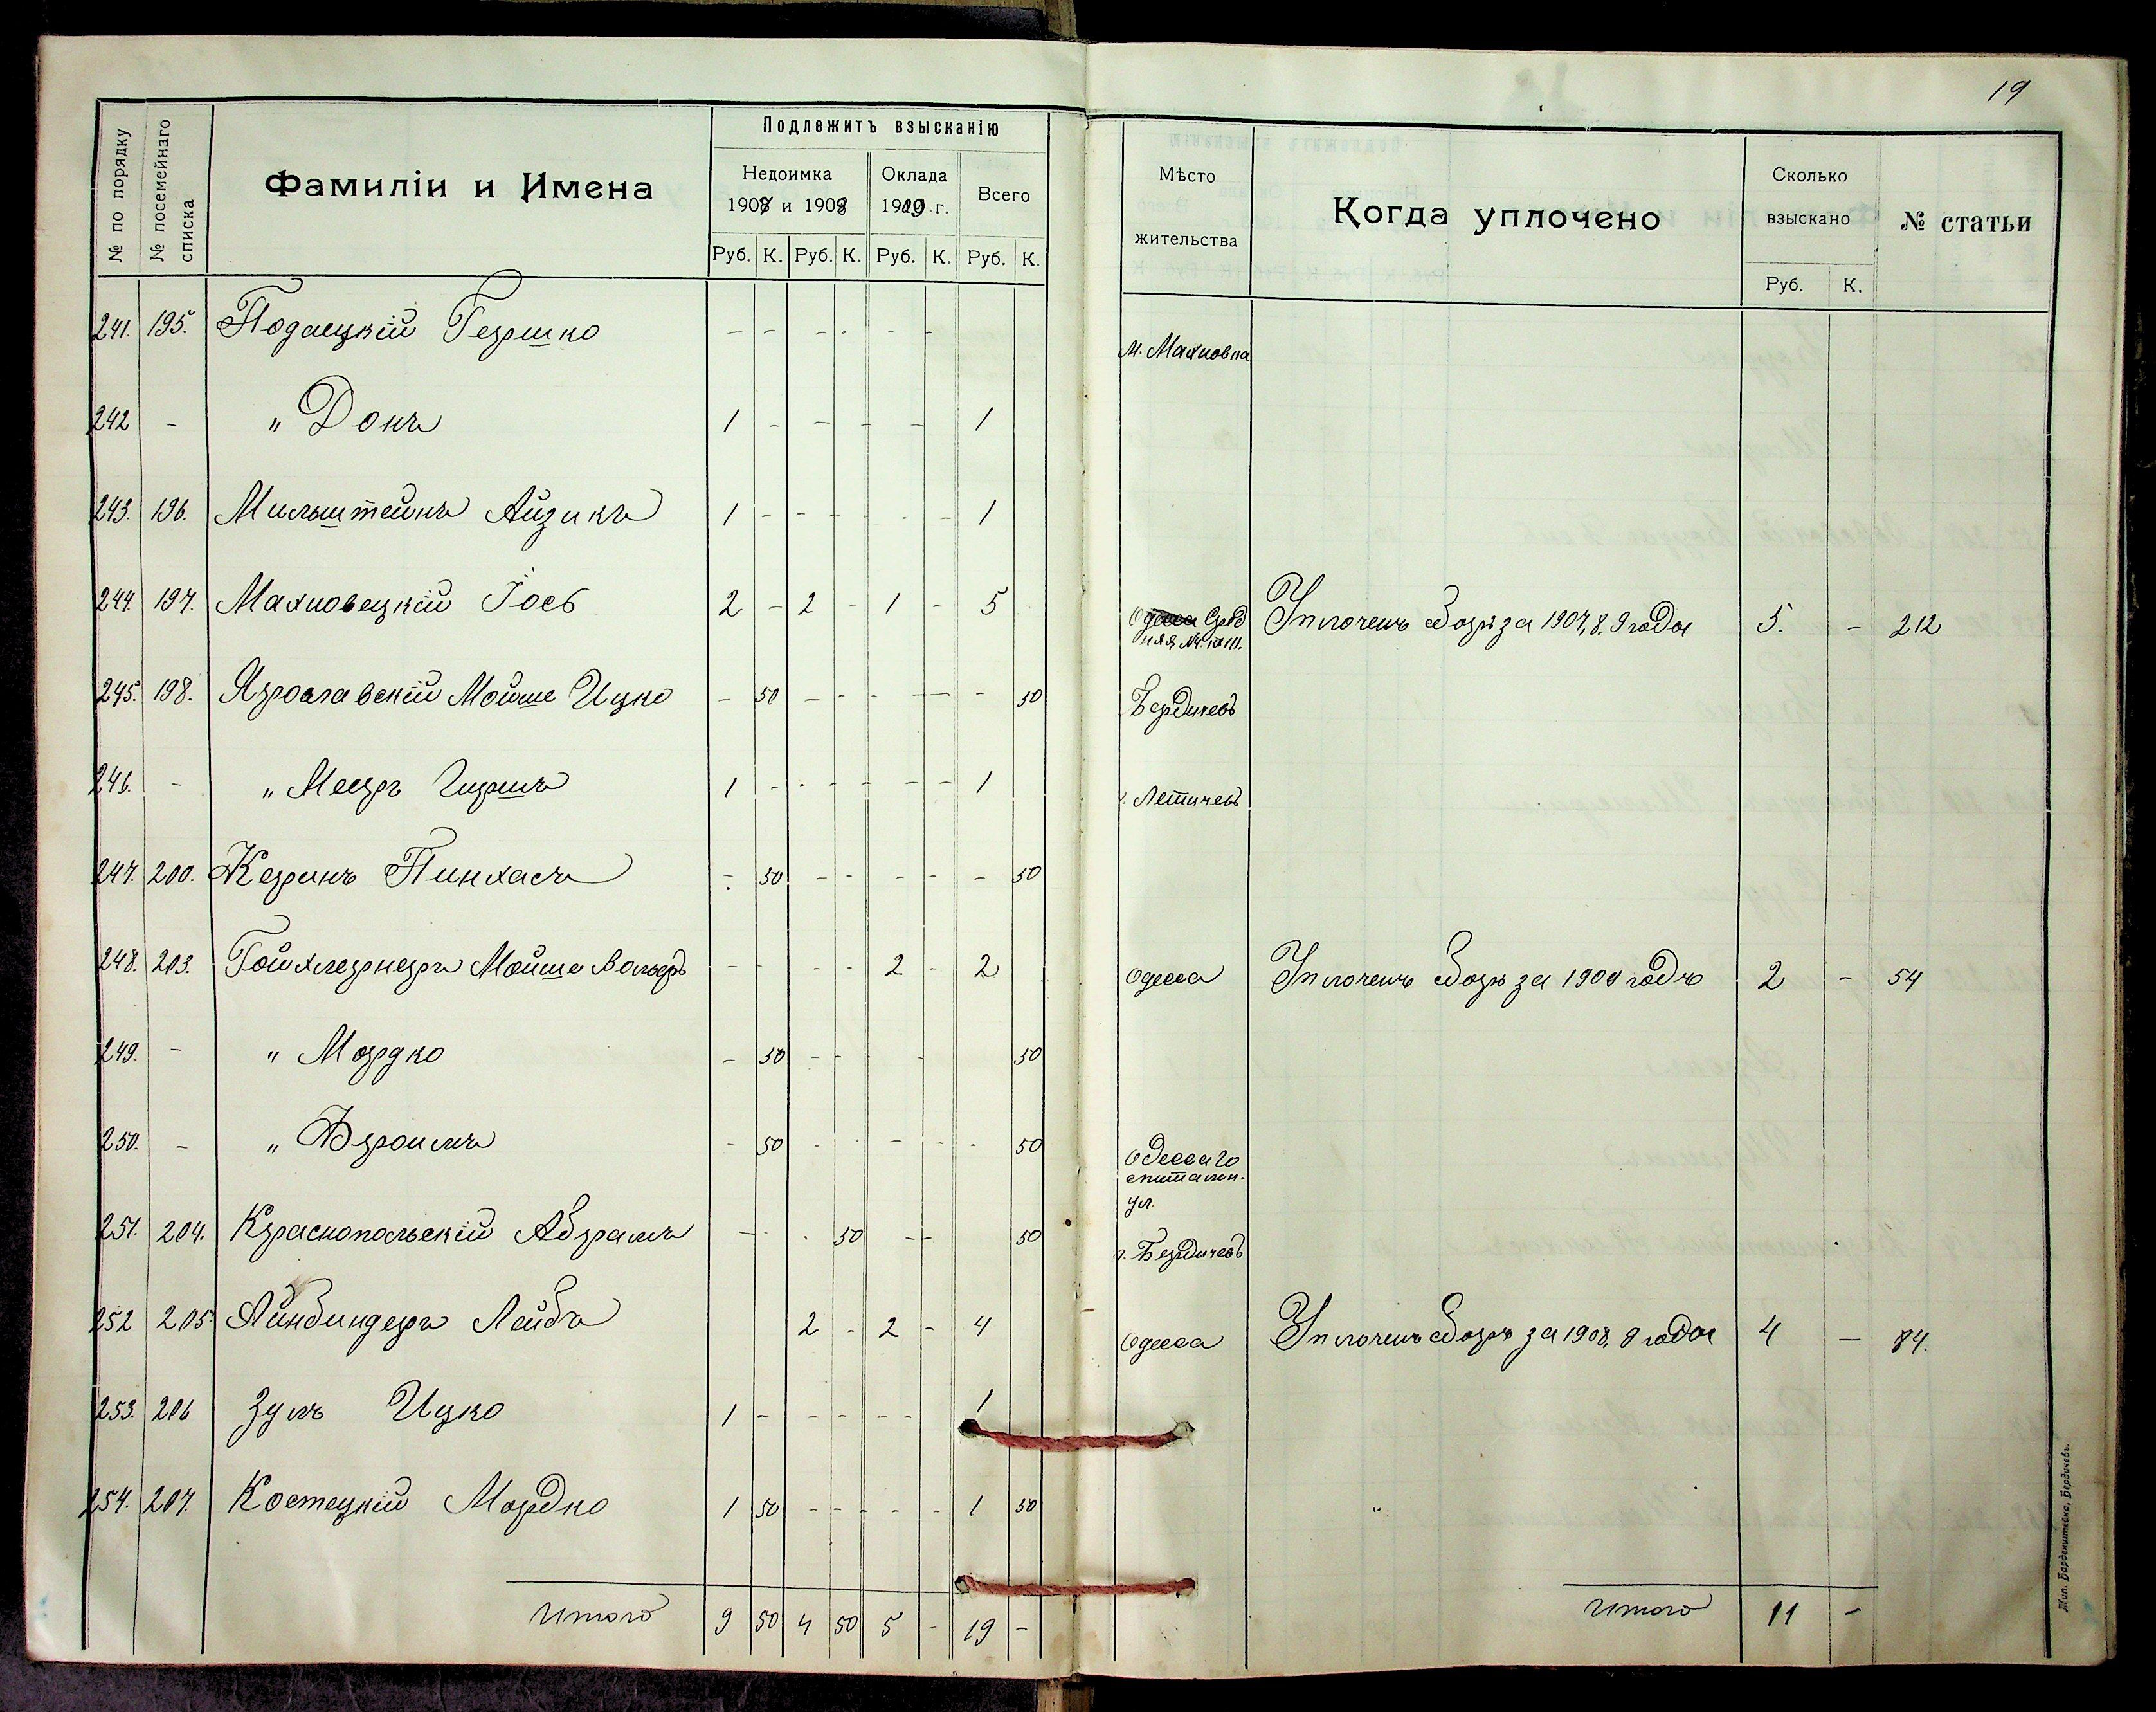 19
№ по порядку № посемейнаго списка Фамиліи и Имена Подлежитъ взысканію
Недоимка 1908 и 1908 Оклада 1909 г. Всего
Руб. К. Руб. К. Руб. К. Руб. К.
Мѣсто жительства Когда уплочено Сколько взыскано № статьи
Руб. К.
241. 195. Подаецкій Гершко - - - - - - м. Махновка
242 - „ Донъ 1 - - - - 1
243. 196. Мильштейнъ Айзикъ 1 - - - - - 1
244. 197. Махновецкій Іосъ 2 - 2 - 1 - 5 Одесса Уплоченъ сборъ за 1907, 8, 9 годы 5. - 212
245. 198. Ярославскій Мойше Ицко - 50 - - - - - 50 Бердичевъ
246. - „ Меиръ Гиршъ 1 - - - - - - 1 Летичевъ
247. 200. Керинъ Пинхасъ - 50 - - - - - 50
248. 203. Гойхлернеръ Мойше Вольфъ - - - - 2 - 2 Одесса Уплоченъ сборъ за 1909 годъ 2 - 54
249. - „ Мордко - 50 - - - - 50
250. - „ Фроимъ - 50 - - - - - 50 Одесса
ул.
251. 204. Краснопольскій Абрамъ - - 50 - - 50 г. Бердичевъ
252 205. Айнбиндеръ Лейбъ 2 - 2 - 4 Одесса Уплоченъ сборъ за 1908, 9 годы 4 - 84.
253. 206 Зумъ Ицко 1 - - - - - 1
254. 207. Костецкій Мордко 1 50 - - - - 1 50
Итого 9 50 4 50 5 - 19 - Итого 11 -
Тип. Барденштейна, Бердичевъ.